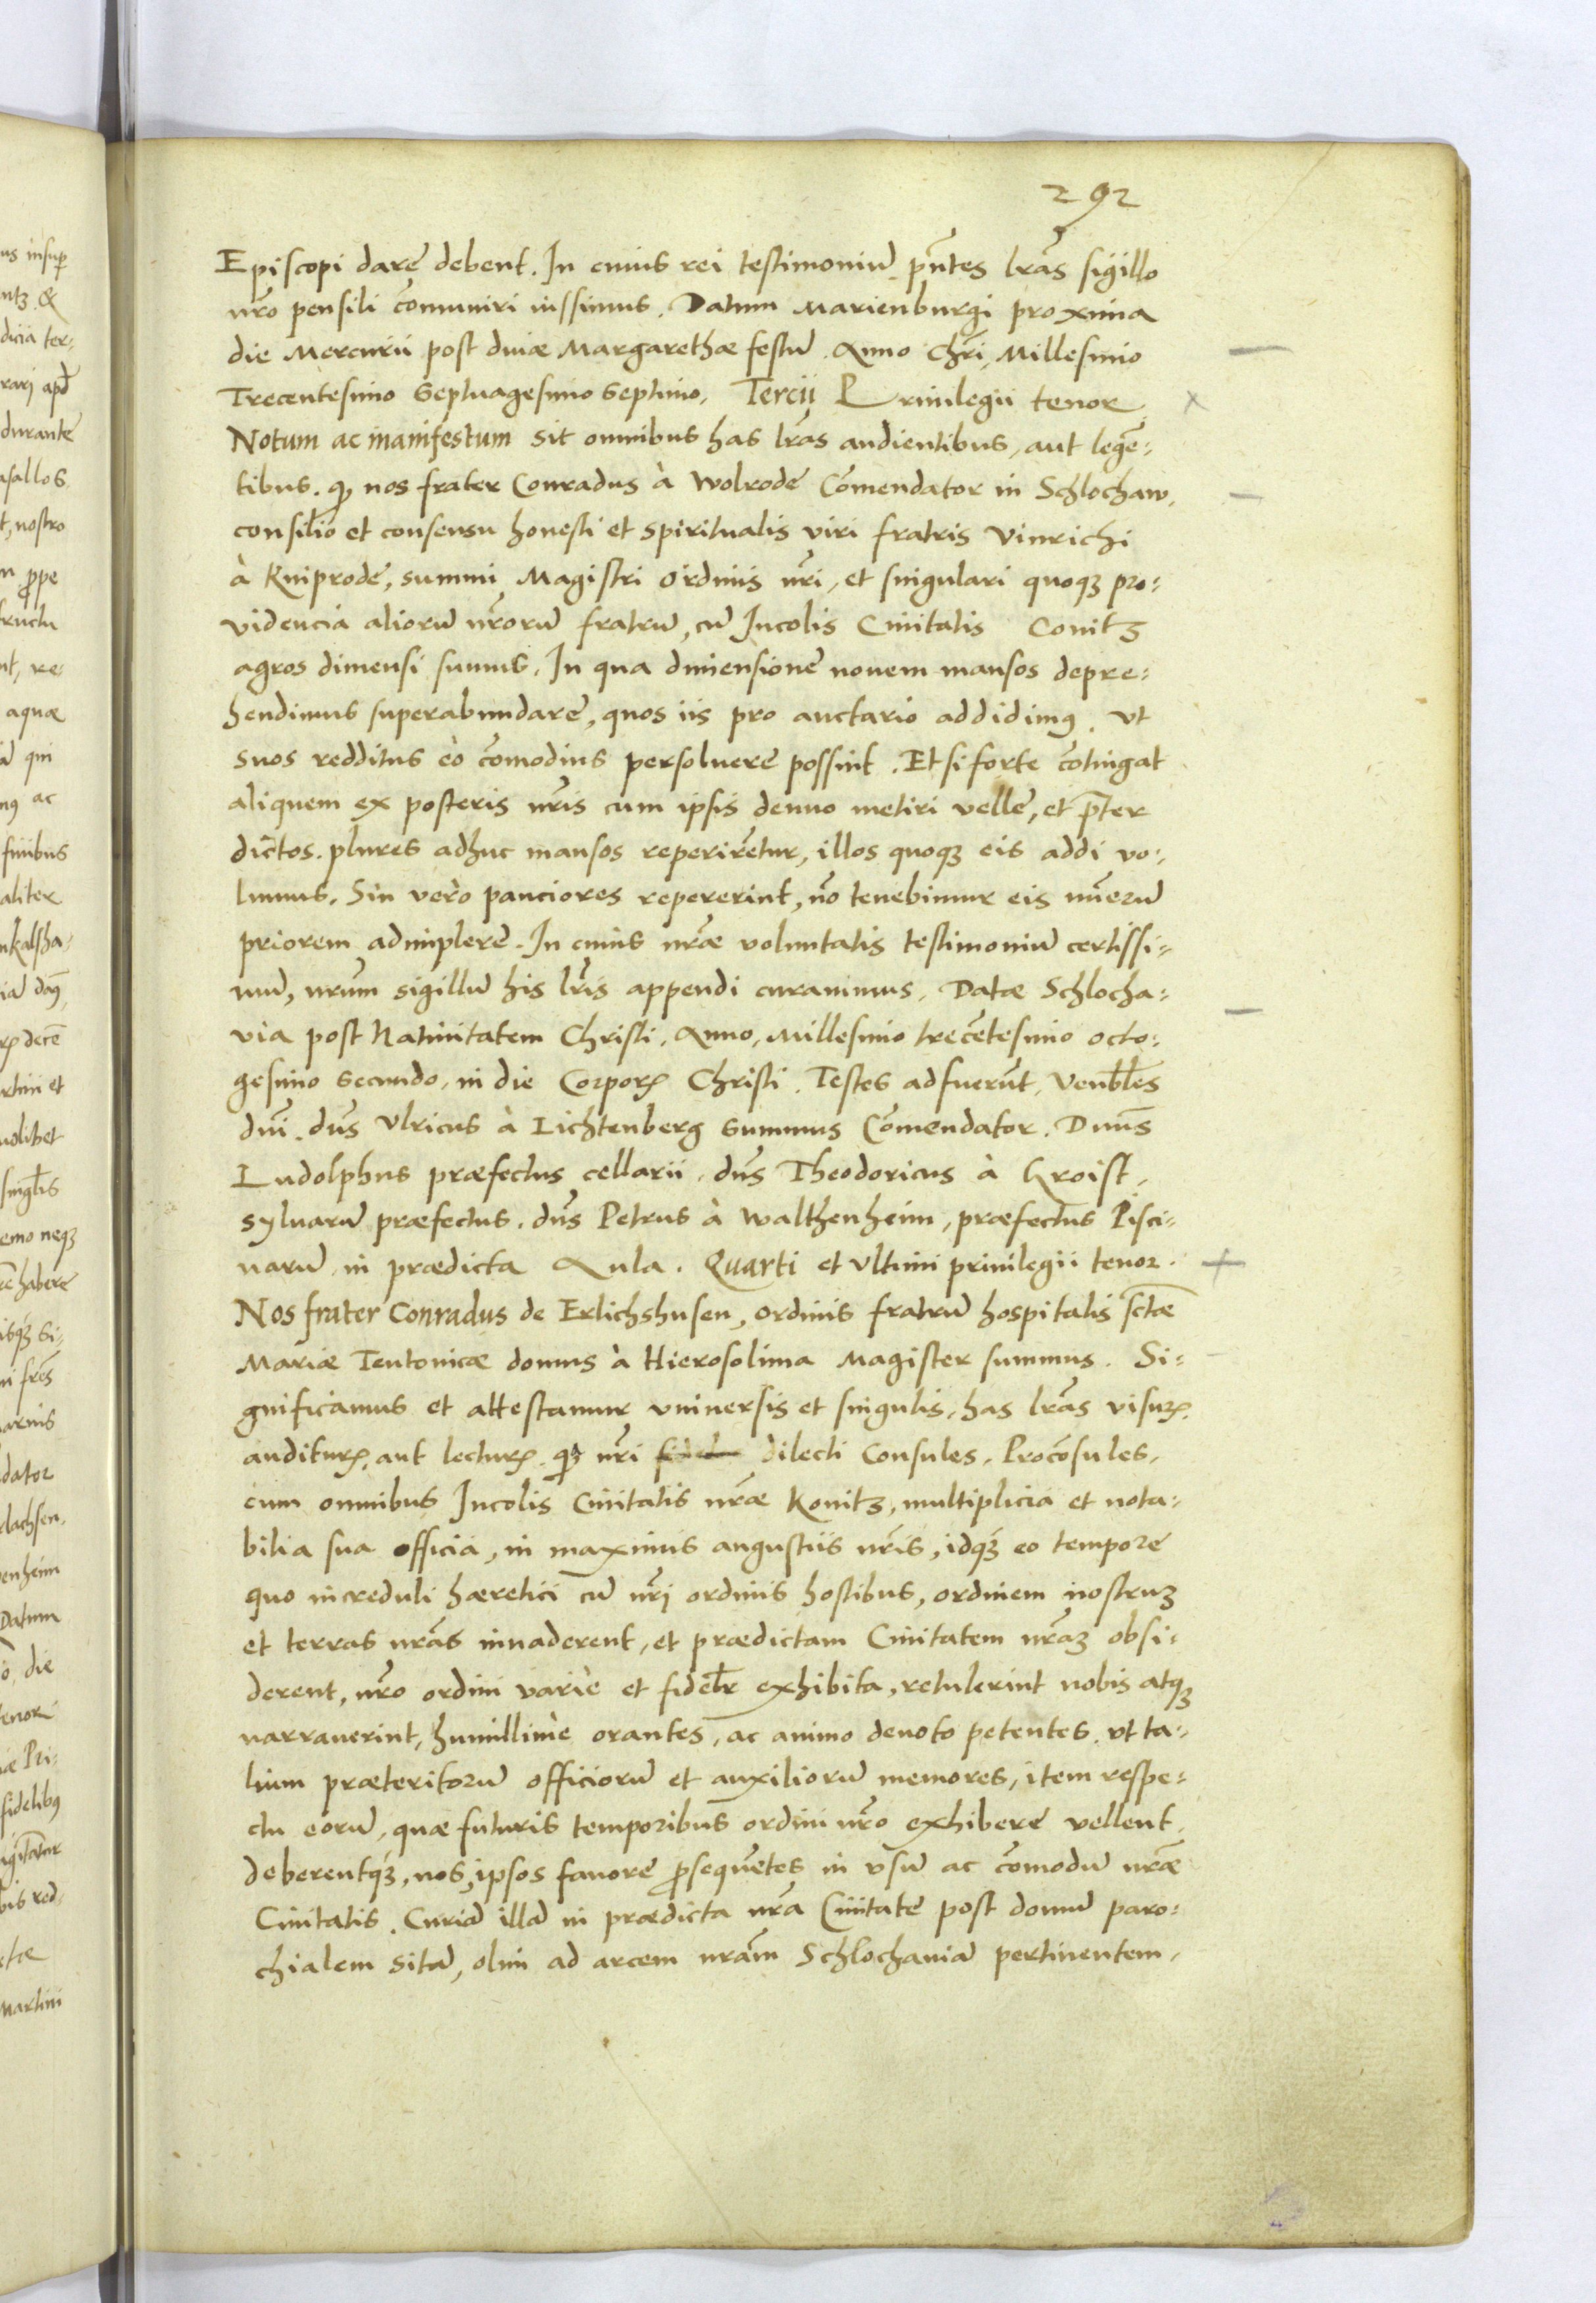 292
Episcopi dare debent. In cuius rei testimoniũ p̃ntes lr̃as sigillo
nr̃o pensili cõmuniri iussimus. Datum Marienburgi proxima
die Mercurii post diuæ Margarethæ festũ. Anno Chr̃i, Millesimo
Trecentesimo Septuagesimo Septimo. Tercii Priuilegii tenor
Notum ac manifestum sit omnibus has lr̃as audientibus, aut legẽ=
tibus. qꝫ nos frater Conradus à Wolrode Cõmendator in Schlochaw,
consilio et consensu honesti et spiritualis viri fratris Vinrichi
à Kniprode, summi Magistri ordinis nr̃i, et singulari quoqꝫ pro=
videncia aliorũ nr̃orũ fratrũ, cũ Incolis Ciuitatis Conitz
agros dimensi sumus. In qua dimensione nouem mansos depre=
hendimus superabundare, quos iis pro auctario addidimꝰ. Vt
suos redditus eò cõmodius persoluere possint. Et si forte cõtingat
aliquem ex posteris nr̃is cum ipsis denuo metiri velle, et p̃ter
dictos. plures adhuc mansos reperirẽtur, illos quoqꝫ eis addi vo=
lumus. Sin verò pauciores repererint, nõ tenebimur eis nũerũ
priorem adimplere. In cuius nr̃æ voluntatis testimoniũ certissi=
mũ, nr̃um sigillũ his lr̃is appendi curauimus. Datæ Schlocha=
via post Natiuitatem Christi. Anno, Millesimo trecẽtesimo octo=
gesimo secundo, in die Corporꝭ Christi. Testes adfuerũt, Venbl̃es
dñi. dñs Vlricus à Lichtenberg summus Cõmendator. Dnñs
Ludolphus præfectus cellarii. dñs Theodoricus à Kroist,
syluarũ præfectus. dñs Petrus à Walthenheim, præfectus Pisci=
narũ, in prædicta Aula. Quarti et vltimi priuilegii tenor.
Nos frater Conradus de Erlichshusen, ordinis fratrũ hospitalis sc̃tæ
Mariæ Teutonicæ domus à Hierosolima Magister summus. Si=
gnificamus et attestamur vniuersis et singulis, has lr̃as visurꝭ.
auditurꝭ, aut lecturꝭ. qꝫ nr̃i dilecti Consules, Procõsules,
cum omnibus Incolis Ciuitatis nr̃æ Konitz, multiplicia et nota=
bilia sua officia, in maximis angustiis nr̃is, idqꝫ eo tempore
quo increduli hæretici cũ nr̃i ordinis hostibus, ordinem nostruꝫ
et terras nr̃as inuaderent, et prædictam Ciuitatem nr̃aꝫ obsi=
derent, nr̃o ordini variè et fidelr̃ exhibita, retulerint nobis atqꝫ
narrauerint, humillimè orantes, ac animo deuoto petentes. vt ta=
lium præteritorũ officiorũ et auxiliorũ memores, item respe=
ctu eorũ, quæ futuris temporibus ordini nr̃o exhibere vellent,
deberentqꝫ, nos, ipsos fauore p̱sequẽtes in vsũ ac cõmodũ nr̃æ
Ciuitatis. Curiã illã in prædicta nr̃a Ciuitate post domũ paro=
chialem sitã, olim ad arcem nr̃am Schlochauiã pertinentem,